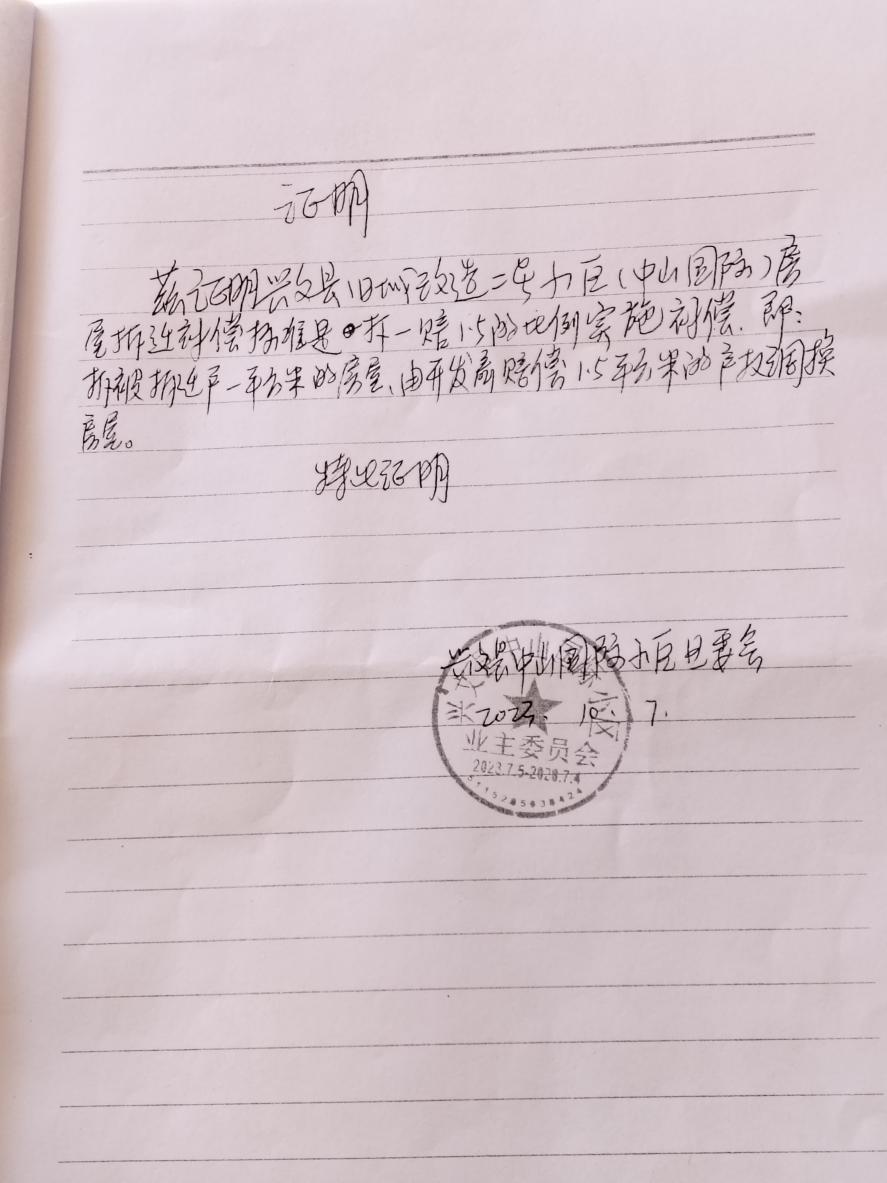 证明
兹证明兴文县旧城改造二号小区(中山国际)房
屋拆迁补偿标准是 拆一赔1.5的比例实施补偿.即:
拆被拆迁户一平方米的房屋、由开发商赔偿1.5平方米的产权调换
房屋。
特此证明
兴文县中山国际小区业委会
2023. 10. 7.
业主委员会
2023.7.5-2028.7.4